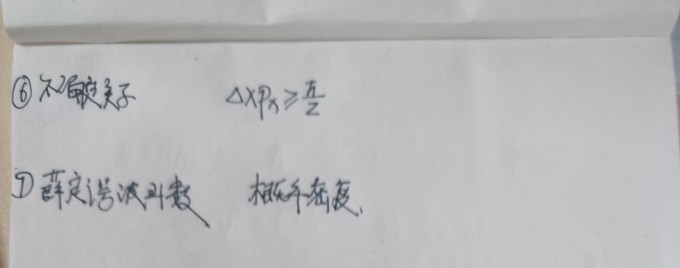 ⑥ 不确定关系 ΔxPx ≥ ħ/2
⑦ 薛定谔波函数 概率密度.